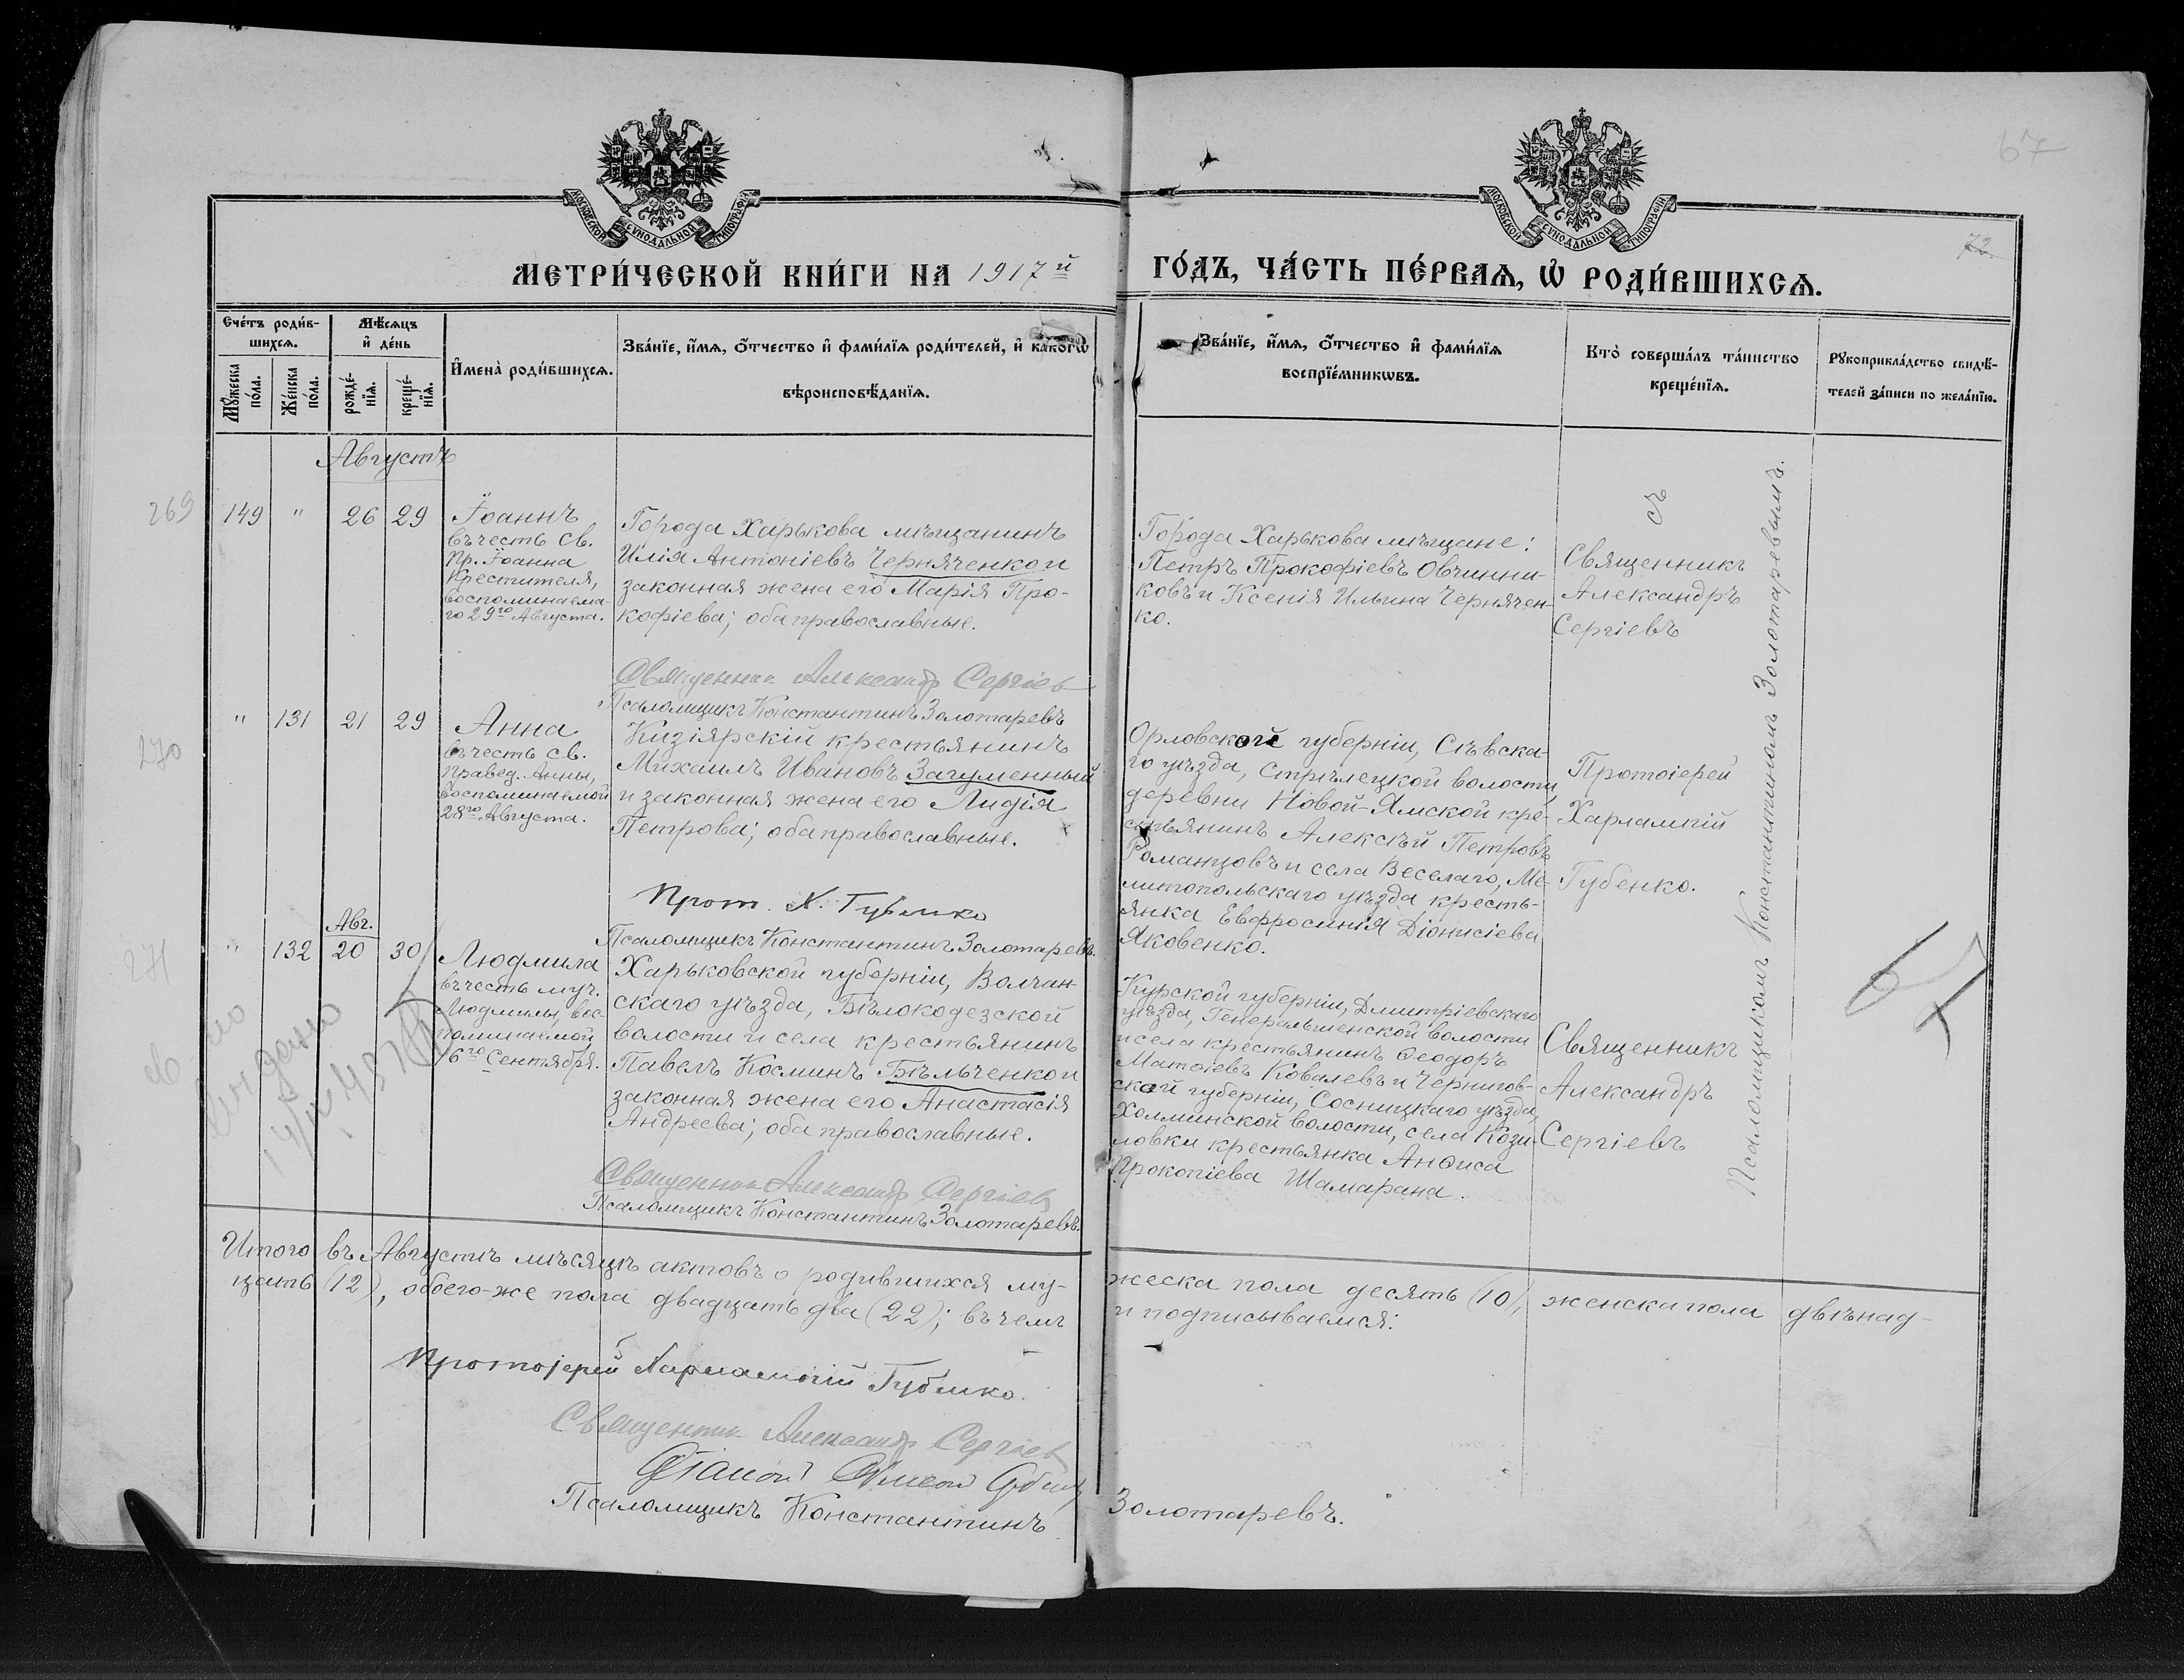 67
72
МОСКОВСКОЙ СѴНОДАЛЬНОЙ ТИПОГРАФІИ
МОСКОВСКОЙ СѴНОДАЛЬНОЙ ТИПОГРАФІИ
МЕТРИ́ЧЕСКОЙ КНИ́ГИ НА 1917й
ГО́ДЪ, ЧА́СТЬ ПЕ́РВАѦ, Ѽ РОДИ́ВШИХСѦ.
Сче́тъ роди́в-
шихсѧ.
Мꙋ́жеска
по́ла.
Же́нска
по́ла.
Мѣ́сѧцъ
и҆ де́нь
рожде́-
нїѧ.
креще́-
нїѧ.
И҆мена̀ роди́вшихсѧ.
Зва́нїе, и҆́мѧ, ѻ҆́тчество и҆ фами́лїѧ роди́телей, и҆ како́гѡ
вѣроисповѣ́данїѧ.
Зва́нїе, и҆́мѧ, ѻ҆́тчество и҆ фами́лїѧ
воспрїе́мникѡвъ.
Кто̀ соверша́лъ та́инство
креще́нїѧ.
Рꙋкоприкла́дство свидѣ́-
телей за́писи по жела́нїю.
Августъ
269
149 " 26 29
Іоаннъ
въ честь св.
Пр. Іоанна
Крестителя,
воспоминаема-
го 29го Августа.
Города Харькова мѣщанинъ
Илія Антоніевъ Черняченко и
законная жена его Марія Про-
кофіева; оба православные.
Священник Александр Сергіев
Псаломщикъ Константинъ Золотаревъ
Города Харькова мѣщане:
Петръ Прокофіевъ Овчинни-
ковъ и Ксенія Ильина Чернячен-
ко.
Священникъ
Александръ
Сергіевъ
съ
Псаломщикомъ Константиномъ Золотаревымъ.
270
" 131 21 29
Анна
въ честь св.
правед. Анны,
воспоминаемой
28го Августа.
Кизіярскій крестьянинъ
Михаилъ Ивановъ Загуменный
и законная жена его Лидія
Петрова; оба православные.
Прот. Х. Губенко
Псаломщикъ Константинъ Золотаревъ.
Орловской губерніи, Сѣвска-
го уѣзда, Стрѣлецкой волости,
деревни Новой-Ямской кре-
стьянинъ Алексѣй Петровъ
Романцовъ и села Веселаго, Ме-
литопольскаго уѣзда кресть-
янка Евфросинія Діонисіева
Яковенко.
Протоіерей
Харлампій
Губенко.
271
Авг.
" 132 20 30
Людмила
въ честь муч.
Людмилы, вос-
поминаемой
16го Сентября.
Харьковской губерніи, Волчан-
скаго уѣзда, Бѣлоколодезской
волости и села крестьянинъ
Павелъ Косминъ Бѣльченко и
законная жена его Анастасія
Андреева; оба православные.
Священник Александр Сергіев
Псаломщикъ Константинъ Золотаревъ.
Курской губерніи, Дмитріевскаго
уѣзда, Генеральшенской волости
и села крестьянинъ Ѳеодоръ
Матѳіевъ Ковалевъ и Чернигов-
ской губерніи, Сосницкаго уѣзда,
Холминской волости, села Кози-
ловки крестьянка Анѳиса
Прокопіева Шамарана.
Священникъ
Александръ
Сергіевъ
выдано
Итого въ Августѣ мѣсяцѣ актовъ о родившихся му-
жеска пола десять (10), женска пола двѣнад-
цать (12), обоего-же пола двадцать два (22); въ чемъ
и подписываемся:
Протоіерей Харлампій Губенко.
Священник Александр Сергіев
Псаломщикъ Константинъ Золотаревъ.